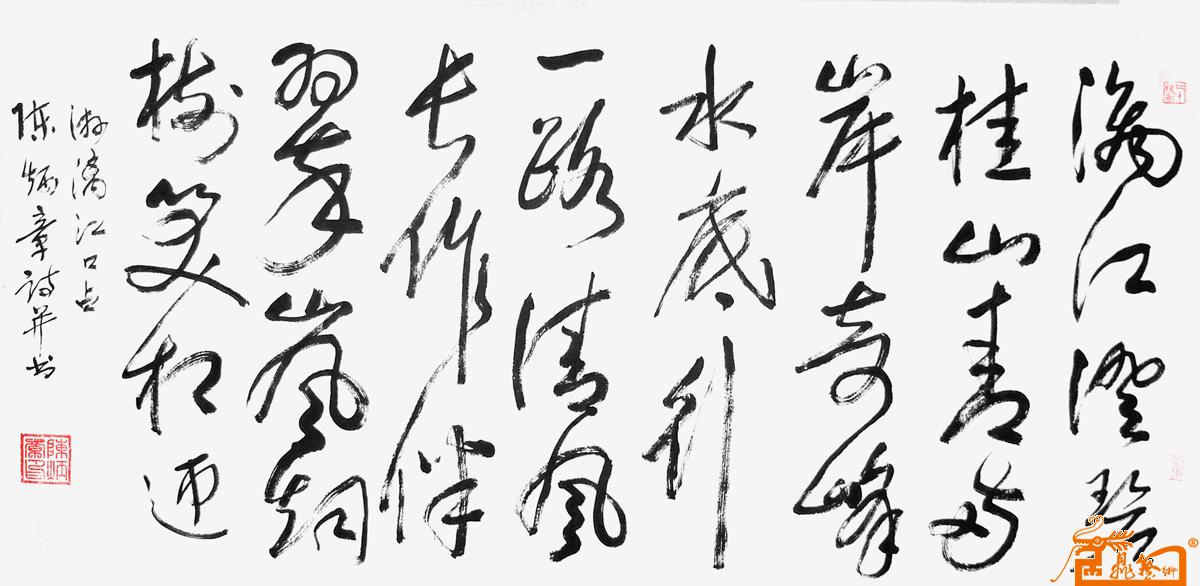 漓江澄碧
桂山青两
岸奇峰
水底行
一路清风
长作伴
翠岚烟
树笑相迎
游漓江口占
陈炳章诗并书
陳炳章印